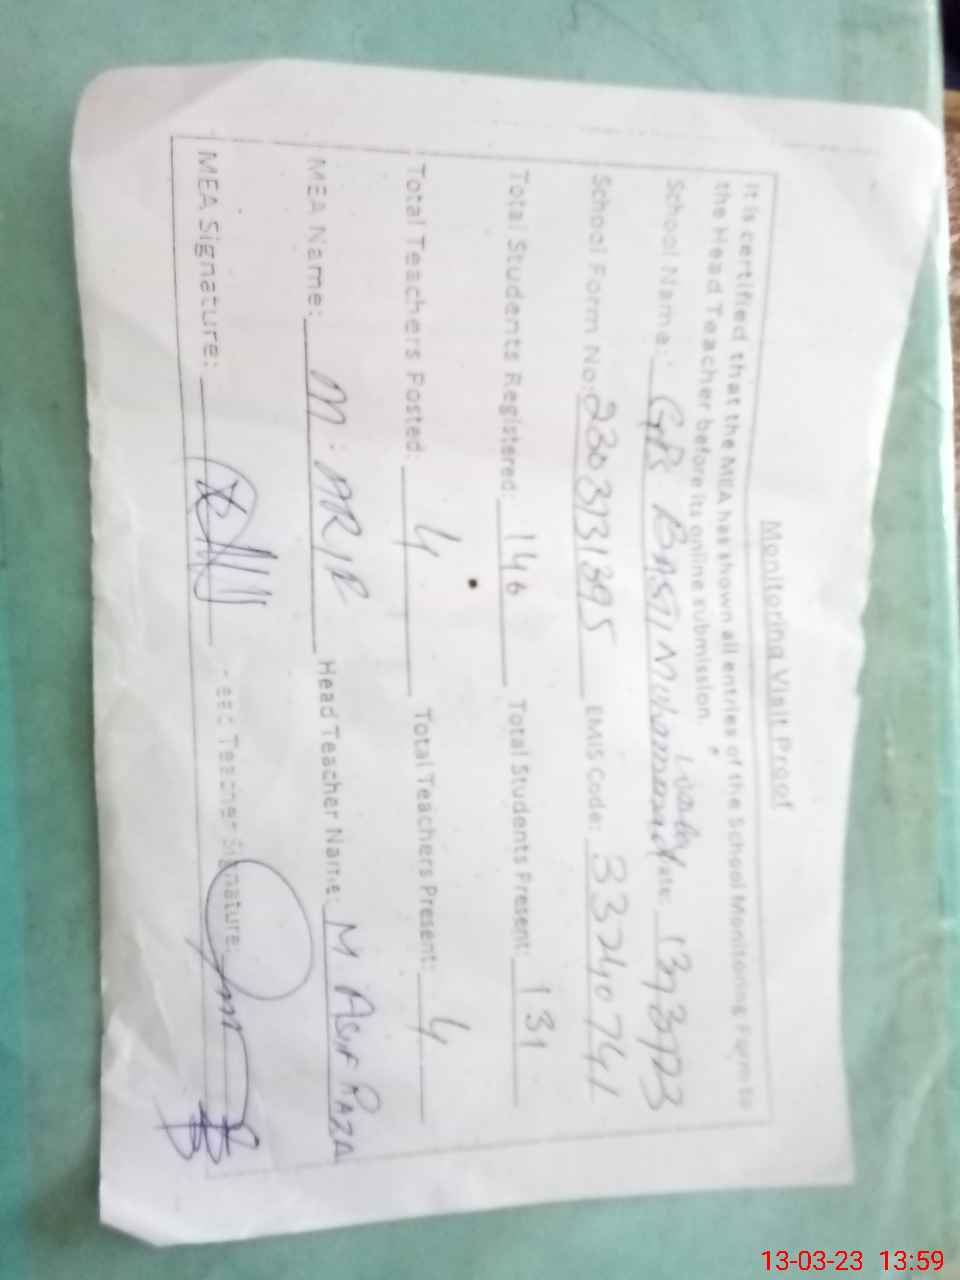 Monitoring Visit Proof
It is certified that the MEA has shown all entries of the School Monitoring Form to
the Head Teacher before its online submission.
School Name: GPS BASTI Muhammad Date: 13/3/23
School Form No: 2303131395 EMIS Code: 33240741
Total Students Registered: 146 Total Students Present: 131
Total Teachers Posted: 4 Total Teachers Present: 4
MEA Name: M. ARIF Head Teacher Name: M ASIF RAZA
MEA Signature: Head Teacher Signature:
13-03-23 13:59